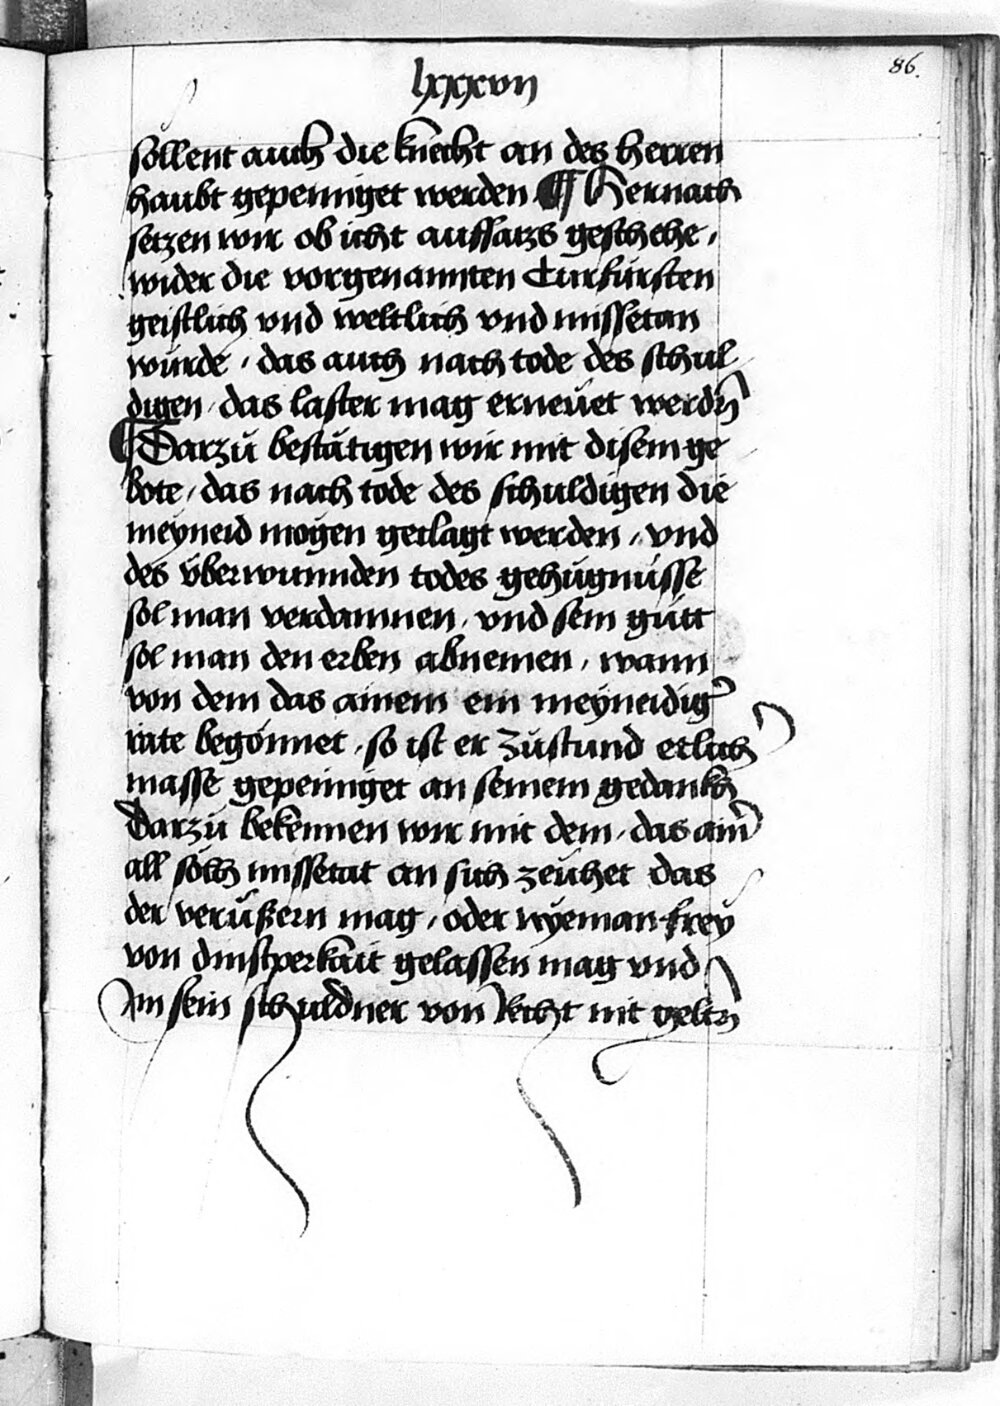 lxxxvii
86.
söllent auch die knecht an des herren
haubt gepeiniget werden ¶ Hernach
setzen wir ob icht aussatzs geschehe,
wider die vorgenannten Curfürsten
geistlich vnd weltlich vnd missetan
würde, das auch nach tode des schul
digen, das laster mag erneüet werdn̄
¶ Darzů bestätigen wir mit disem ge
bote, das nach tode des schuldigen die
meyneid mogen geclagt werden, vnd
des v̈berwunnden todes gehügnüsse
sol man verdamnen, vnd sein gůtt
sol man den erben abnemen, wann
von dem das ainem ein meyneidigʼ
rate begonnet, so ist er zůstund etlich
masse gepeiniget an seinem gedankn̄
Darzů bekennen wir mit dem, das ainʼ
all sölch missetat an sich zeuhet das
der verüßern mag, oder nyeman frey
von dinstperkait gelassen mag vnd
Im sein schuldner von Recht nit geltn̄